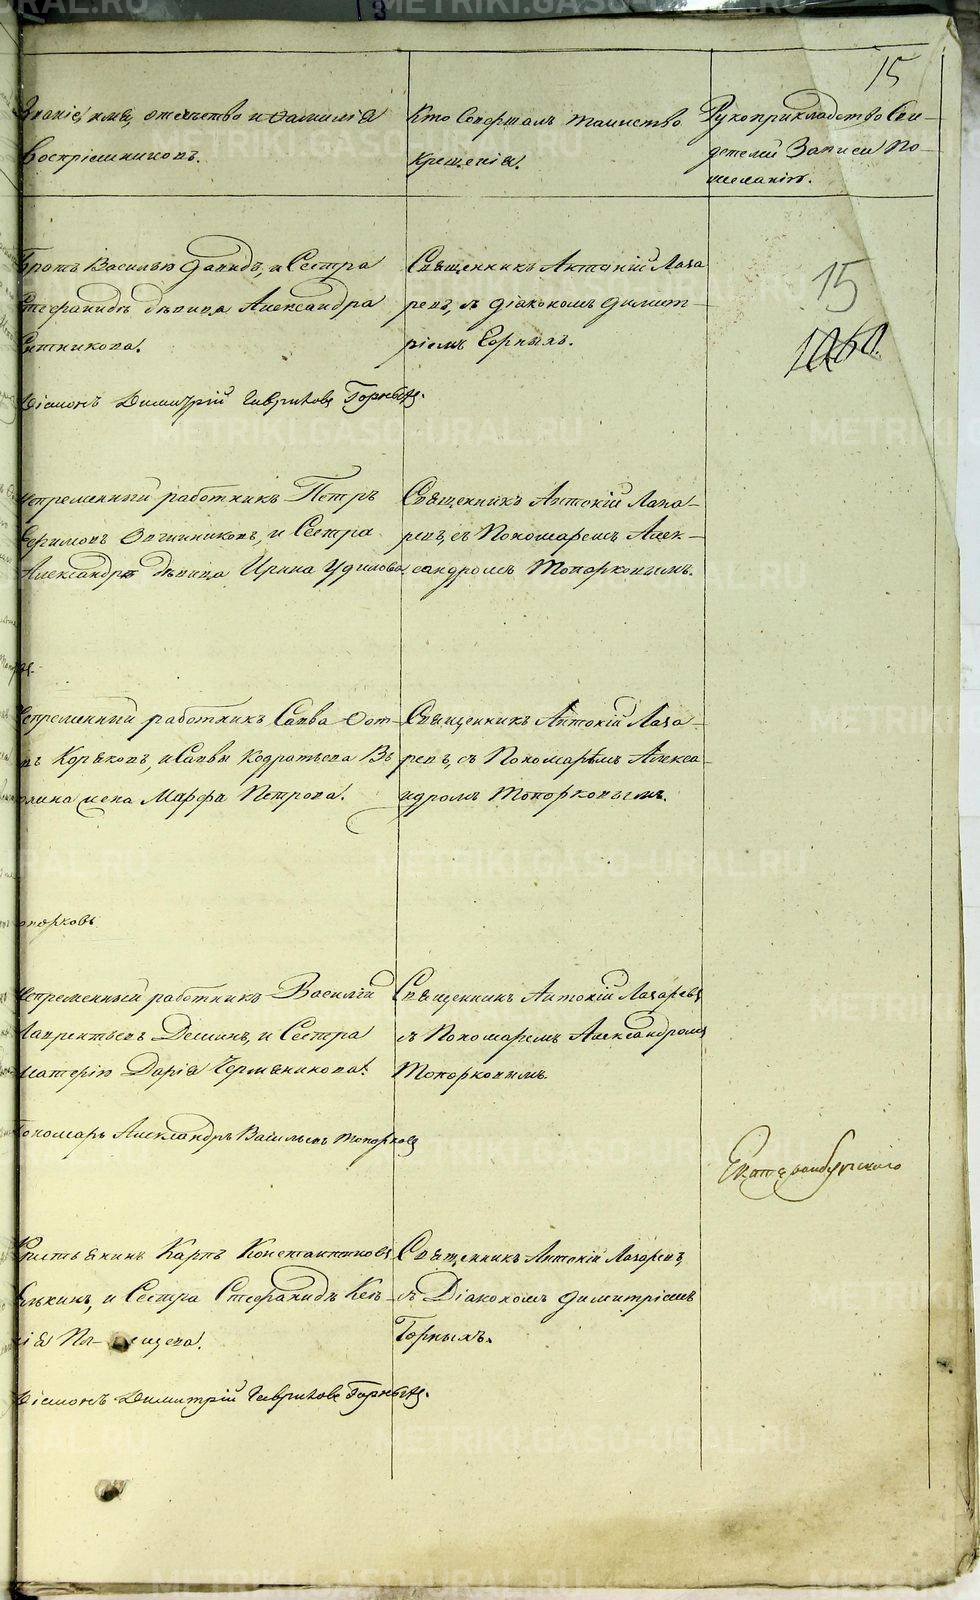 15
Званіе, имя, отечество и фамилія
Воспріемниковъ.
Кто Совершалъ таинство
Крещенія.
Рукоприкладство Сви-
детелей Записи По-
желанію.
Братъ Василью Давидъ, и Сестра
Стефаниды дѣвица Александра
Ситникова.
Священникъ Антоній Лаза
ревъ, съ діакономъ Димит-
ріемъ Горныхъ.
15
1060.
Діаконъ Димитрій Гавриловъ Горныхъ.
Непременный работникъ Петръ
Ефимовъ Овчинниковъ, и Сестра
Александръ дѣвица Ирина Удилова
Священникъ Антоній Лаза-
ревъ, съ Пономаремъ Алек-
сандромъ Топорковымъ.
Непременный работникъ Савва Фот-
въ Коряковъ, и Саввы Кодратьева
жена Марфа Петрова.
Священникъ Антоній Лаза-
ревъ, съ Пономаремъ Алекса-
ндромъ Топорковымъ.
опорковъ
Непременный работникъ Василій
Лаврентьевъ Деминъ, и Сестра
матерію Дарія Чермяникова.
Священникъ Антоній Лазаревъ
съ Пономаремъ Александромъ
Топорковымъ.
Пономарь Александръ Васильевъ Топорковъ
Екатеринбургскаго
Крестьянинъ Карпъ Константиновъ
Елькинъ, и Сестра Стефанидъ Кси-
нія
Священникъ Антоній Лазаревъ,
съ Діакономъ Димитріемъ
Горныхъ.
Діаконъ Димитрій Гавриловъ Горныхъ.
METRIKI.GASO-URAL.RU